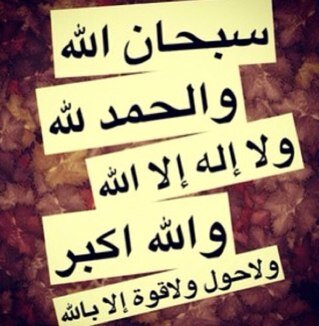 سبحان الله
والحمد لله
ولا إله إلا الله
والله اكبر
ولاحول ولاقوة إلا بالله